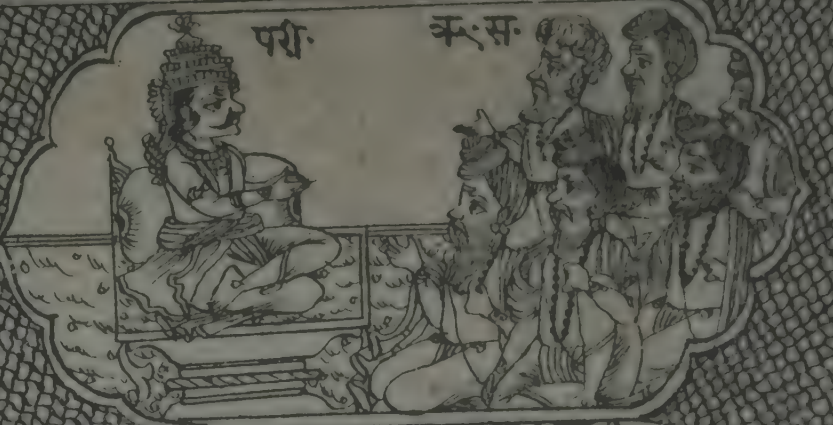 परी॰ ऋ॰ स॰